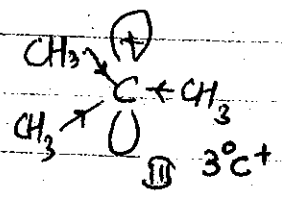 +
CH₃
C CH₃
CH₃
III 3°C⁺